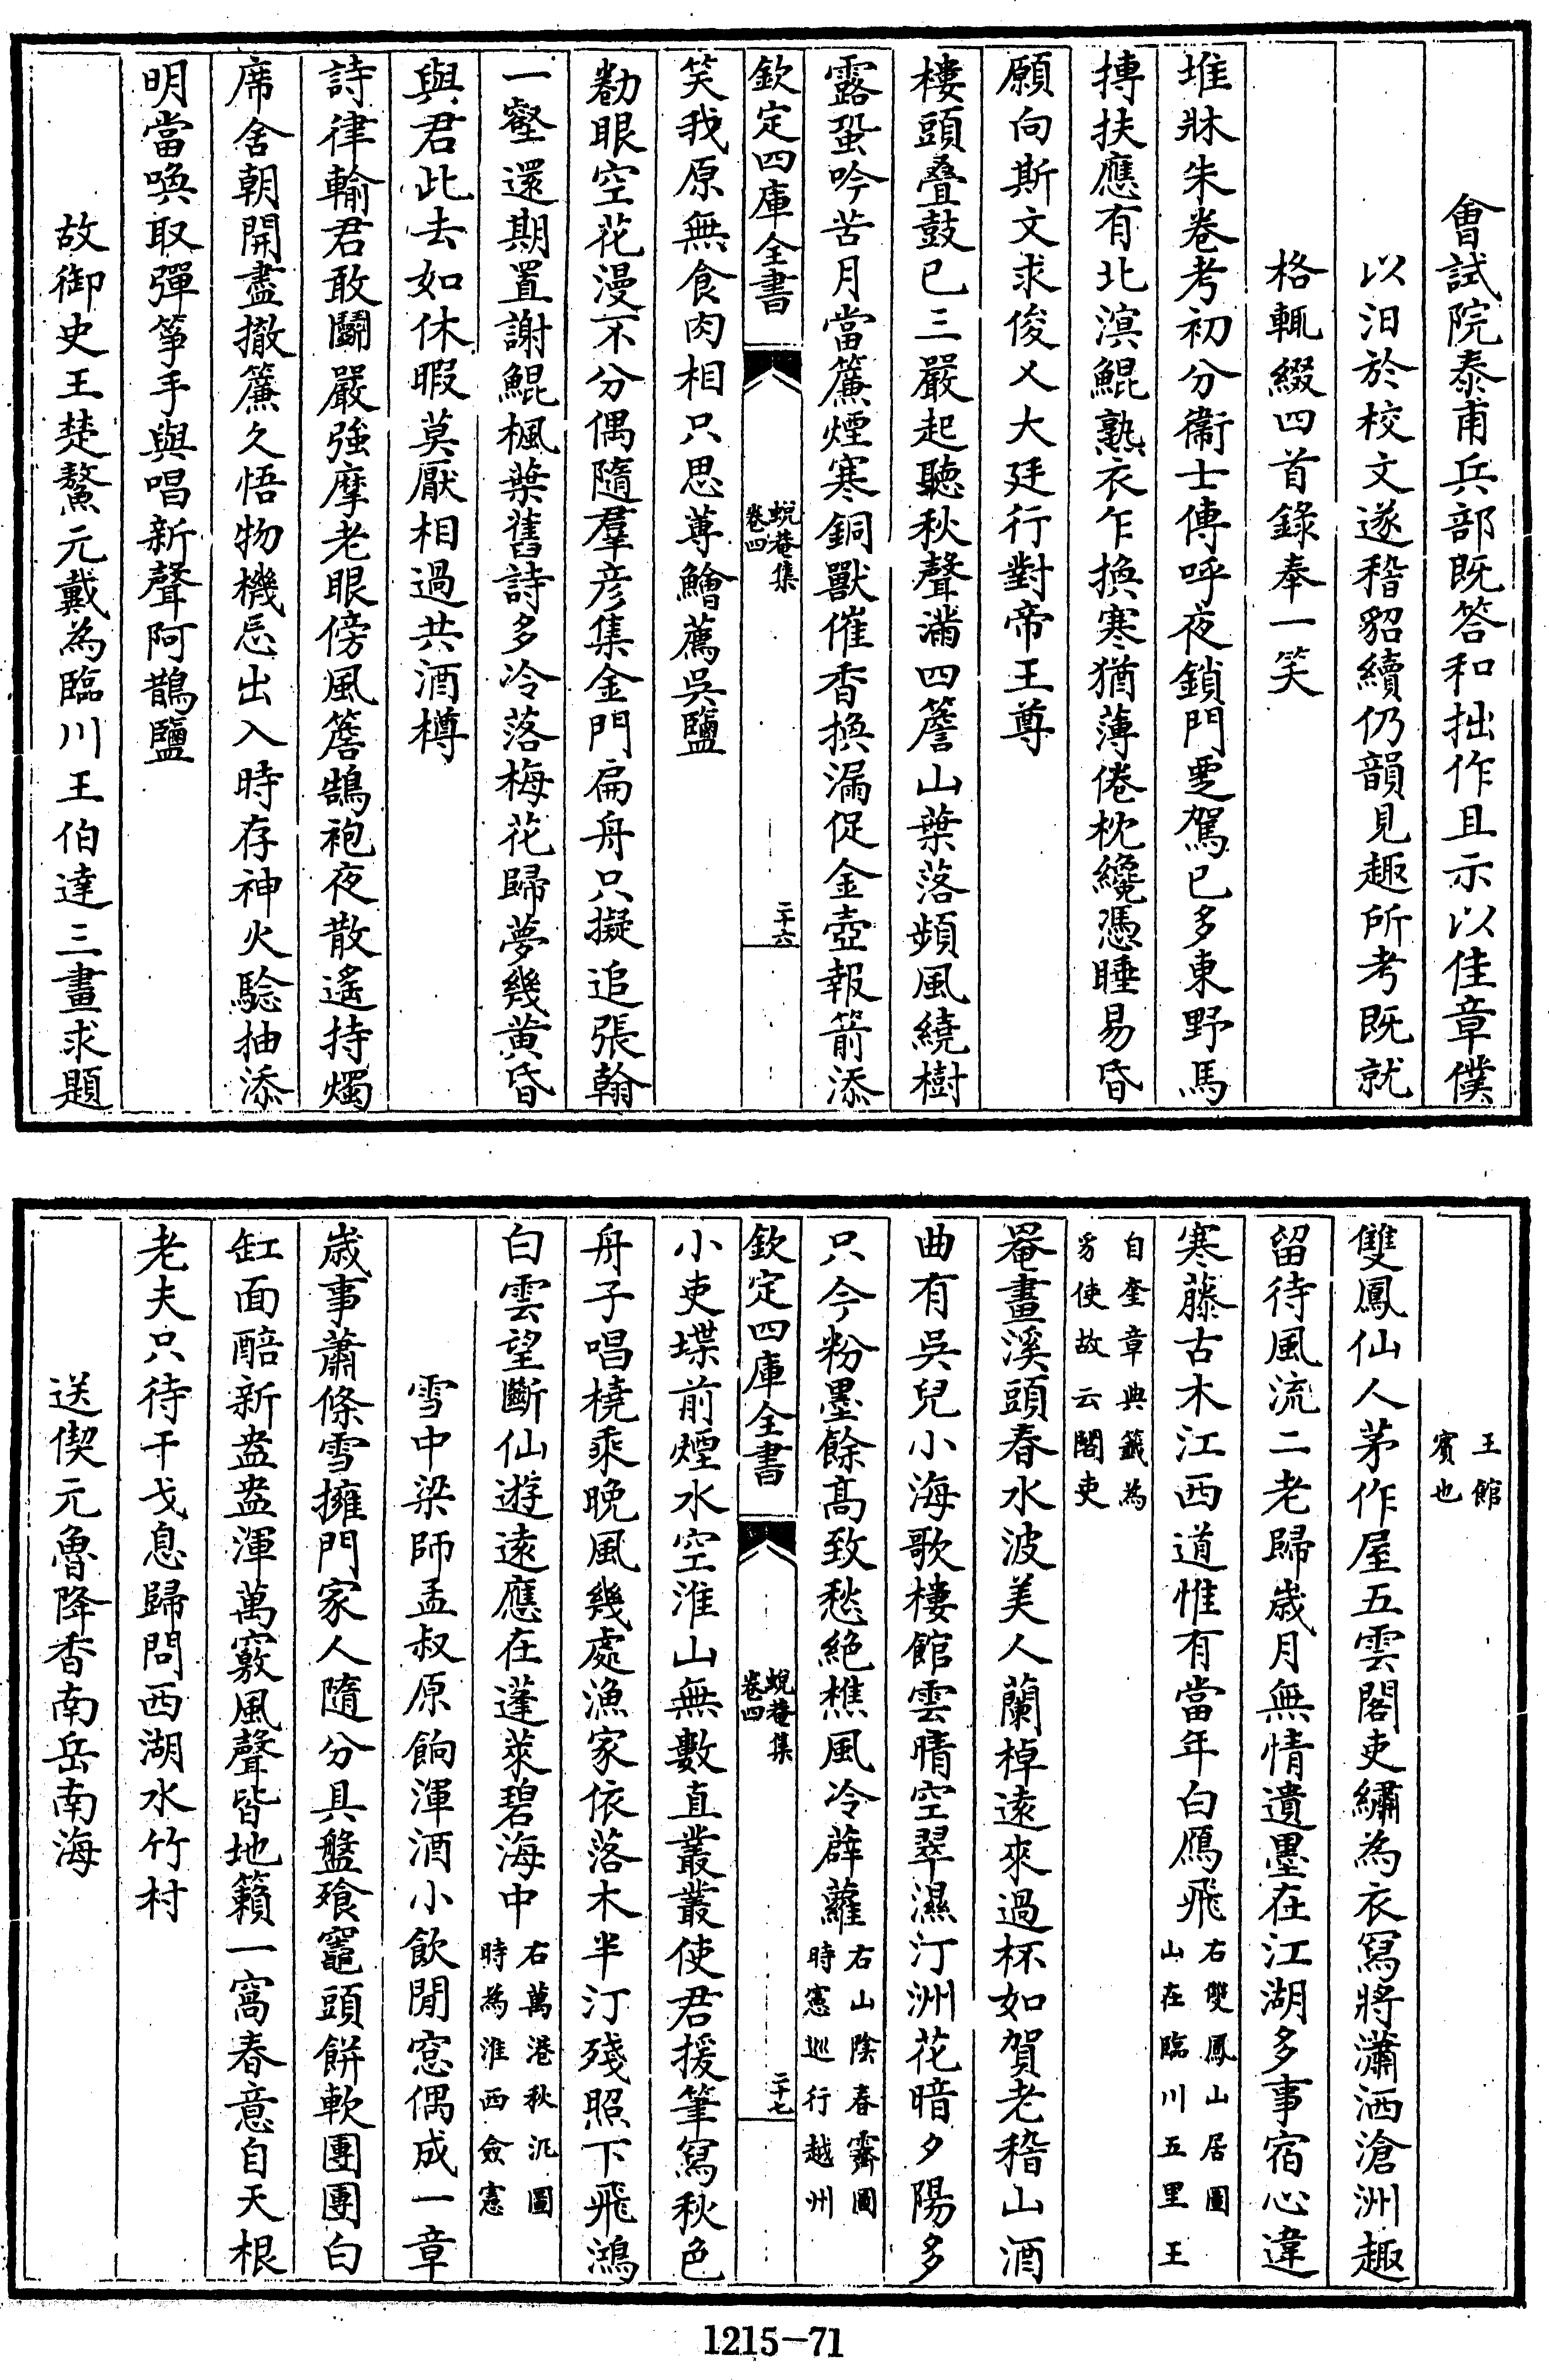 會試院泰甫兵部既答和拙作且示以佳章僕
以汨於校文遂稽貂續仍韻見趣所考既就
格輒綴四首錄奉一笑
堆牀朱卷考初分衞士傳呼夜鎖門要駕已多東野馬
摶扶應有北溟鯤熟衣乍換寒猶薄倦枕纔憑睡易昏
願向斯文求俊乂大廷行對帝王尊
樓頭叠鼓已三嚴起聽秋聲滿四簷山葉落頻風繞樹
露蛩吟苦月當簾煙寒銅獸催香換漏促金壺報箭添
欽定四庫全書
蛻菴集
卷四
二十六
笑我原無食肉相只思蓴鱠薦吳鹽
勌眼空花漫不分偶隨羣彦集金門扁舟只擬追張翰
一壑還期置謝鯤楓葉舊詩多冷落梅花歸夢幾黄昏
與君此去如休暇莫厭相過共酒樽
詩律輸君敢鬬嚴強摩老眼傍風簷鵠袍夜散遙持燭
席舍朝開盡撤簾久悟物機忘出入時存神火騐抽添
明當喚取彈箏手與唱新聲阿鵲鹽
故御史王楚鰲元戴為臨川王伯達三畫求題
王館
賓也
雙鳳仙人茅作屋五雲閣吏繡為衣冩將瀟洒滄洲趣
留待風流二老歸歲月無情遺墨在江湖多事宿心違
寒藤古木江西道惟有當年白鴈飛
右雙鳳山居圖
山在臨川五里王
自奎章典籤為
豸使故云閣吏
罨畫溪頭春水波美人蘭棹遠來過杯如賀老稽山酒
曲有吳兒小海歌樓館雲晴空翠濕汀洲花暗夕陽多
只今粉墨餘髙致愁絶樵風冷薜蘿
右山陰春霽圖
時憲巡行越州
欽定四庫全書
蛻菴集
卷四
二十七
小吏堞前煙水空淮山無數直叢叢使君援筆寫秋色
舟子唱橈乘晚風幾處漁家依落木半汀殘照下飛鴻
白雲望斷仙遊遠應在蓬萊碧海中
右萬港秋汎圖
時為淮西僉憲
雪中梁師孟叔原餉渾酒小飲閒窓偶成一章
歲事蕭條雪擁門家人隨分具盤飱竈頭餅軟團團白
缸面醅新盎盎渾萬竅風聲皆地籟一窩春意自天根
老夫只待干戈息歸問西湖水竹村
送偰元魯降香南岳南海
1215—71